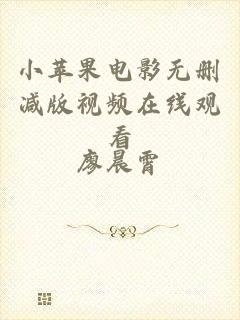 小苹果电影无删
减版视频在线观
看
廖晨霄